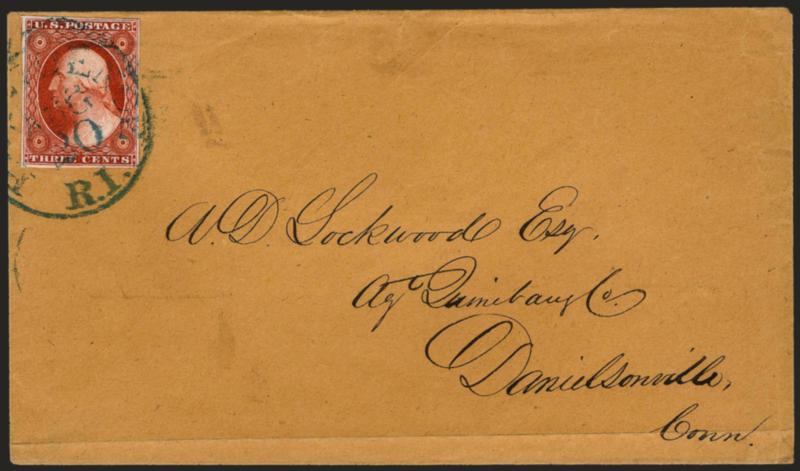 U.S. POSTAGE
20
THREE CENTS
R.I.
A. D. Lockwood Esq.
Agt Quinebaug Co.
Danielsonville,
Conn.